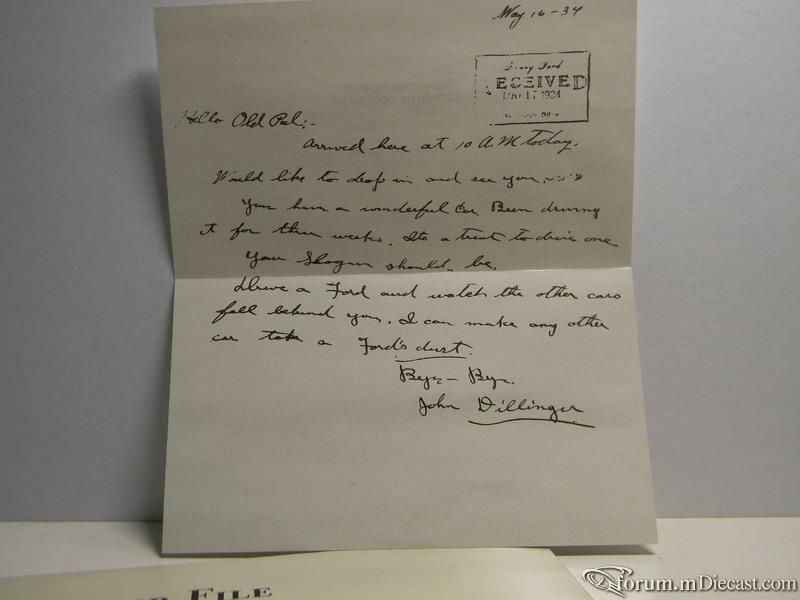 May 16-34
Henry Ford
RECEIVED
MAY 17 1934
REPRODUCTION OF
AUTHENTIC DOCUMENT
Hello Old Pal:-
Arrived here at 10 AM today.
Would like to drop in and see you.
You have a wonderful Car Been driving
it for three weeks. Its a treat to drive one
Your Slogan should be.
Drive a Ford and watch the other cars
fall behind you. I can make any other
car take a Ford's dust.
Bye-Bye.
John Dillinger
FILE
forum.mDiecast.com